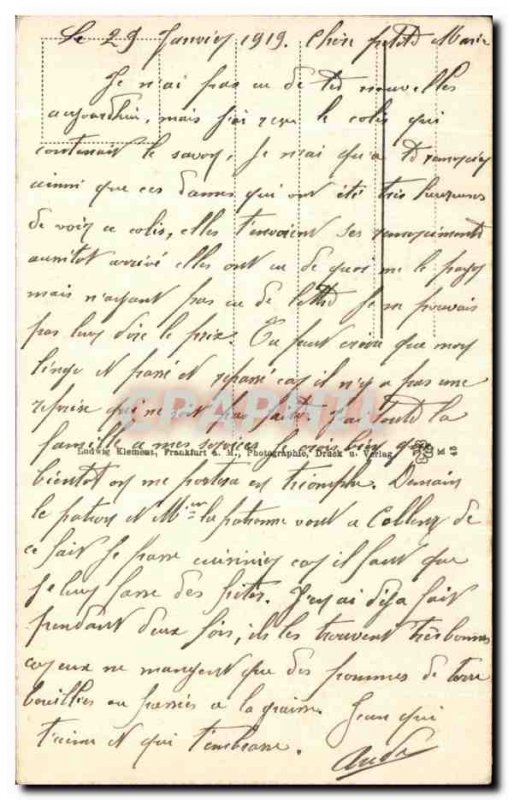 Le 29 Janvier 1919. Chère petite Marie
Je n'ai pas eu de tes nouvelles
aujourdhui, mais j'ai reçu le colis qui
contenait le savon, Je n'ai qu'a te remercier
ainsi que ces dames qui ont été très heureuses
de voir ce colis, elles t'envoient ses remerciements
aussitot arrivé elles ont eu de quoi me le payer
mais n'ayant pas eu de lettre Je ne pouvais
pas leur dire le prix. Tu peut croire que mon
linge et passé et repassé car il n'y a pas une
reprise qui ne soit pas faite, J'ai toute la
famille a mes services Je crois bien que
Ludwig Klement, Frankfurt a. M., Photographie, Druck u. Verlag
bientot on me portera en triomphe. Demain
le patron et Mme la patronne vont a Coblenz de
ce fait Je passe cuisinier car il faut que
Je leur fasse des frites. J'en ai déja fait
pendant deux fois, ils les trouvent très bonnes
car eux ne mangent que des pommes de terre
bouillies ou passées a la graisse. Jean qui
t'aime et qui t'embrasse.
CPAPHIL